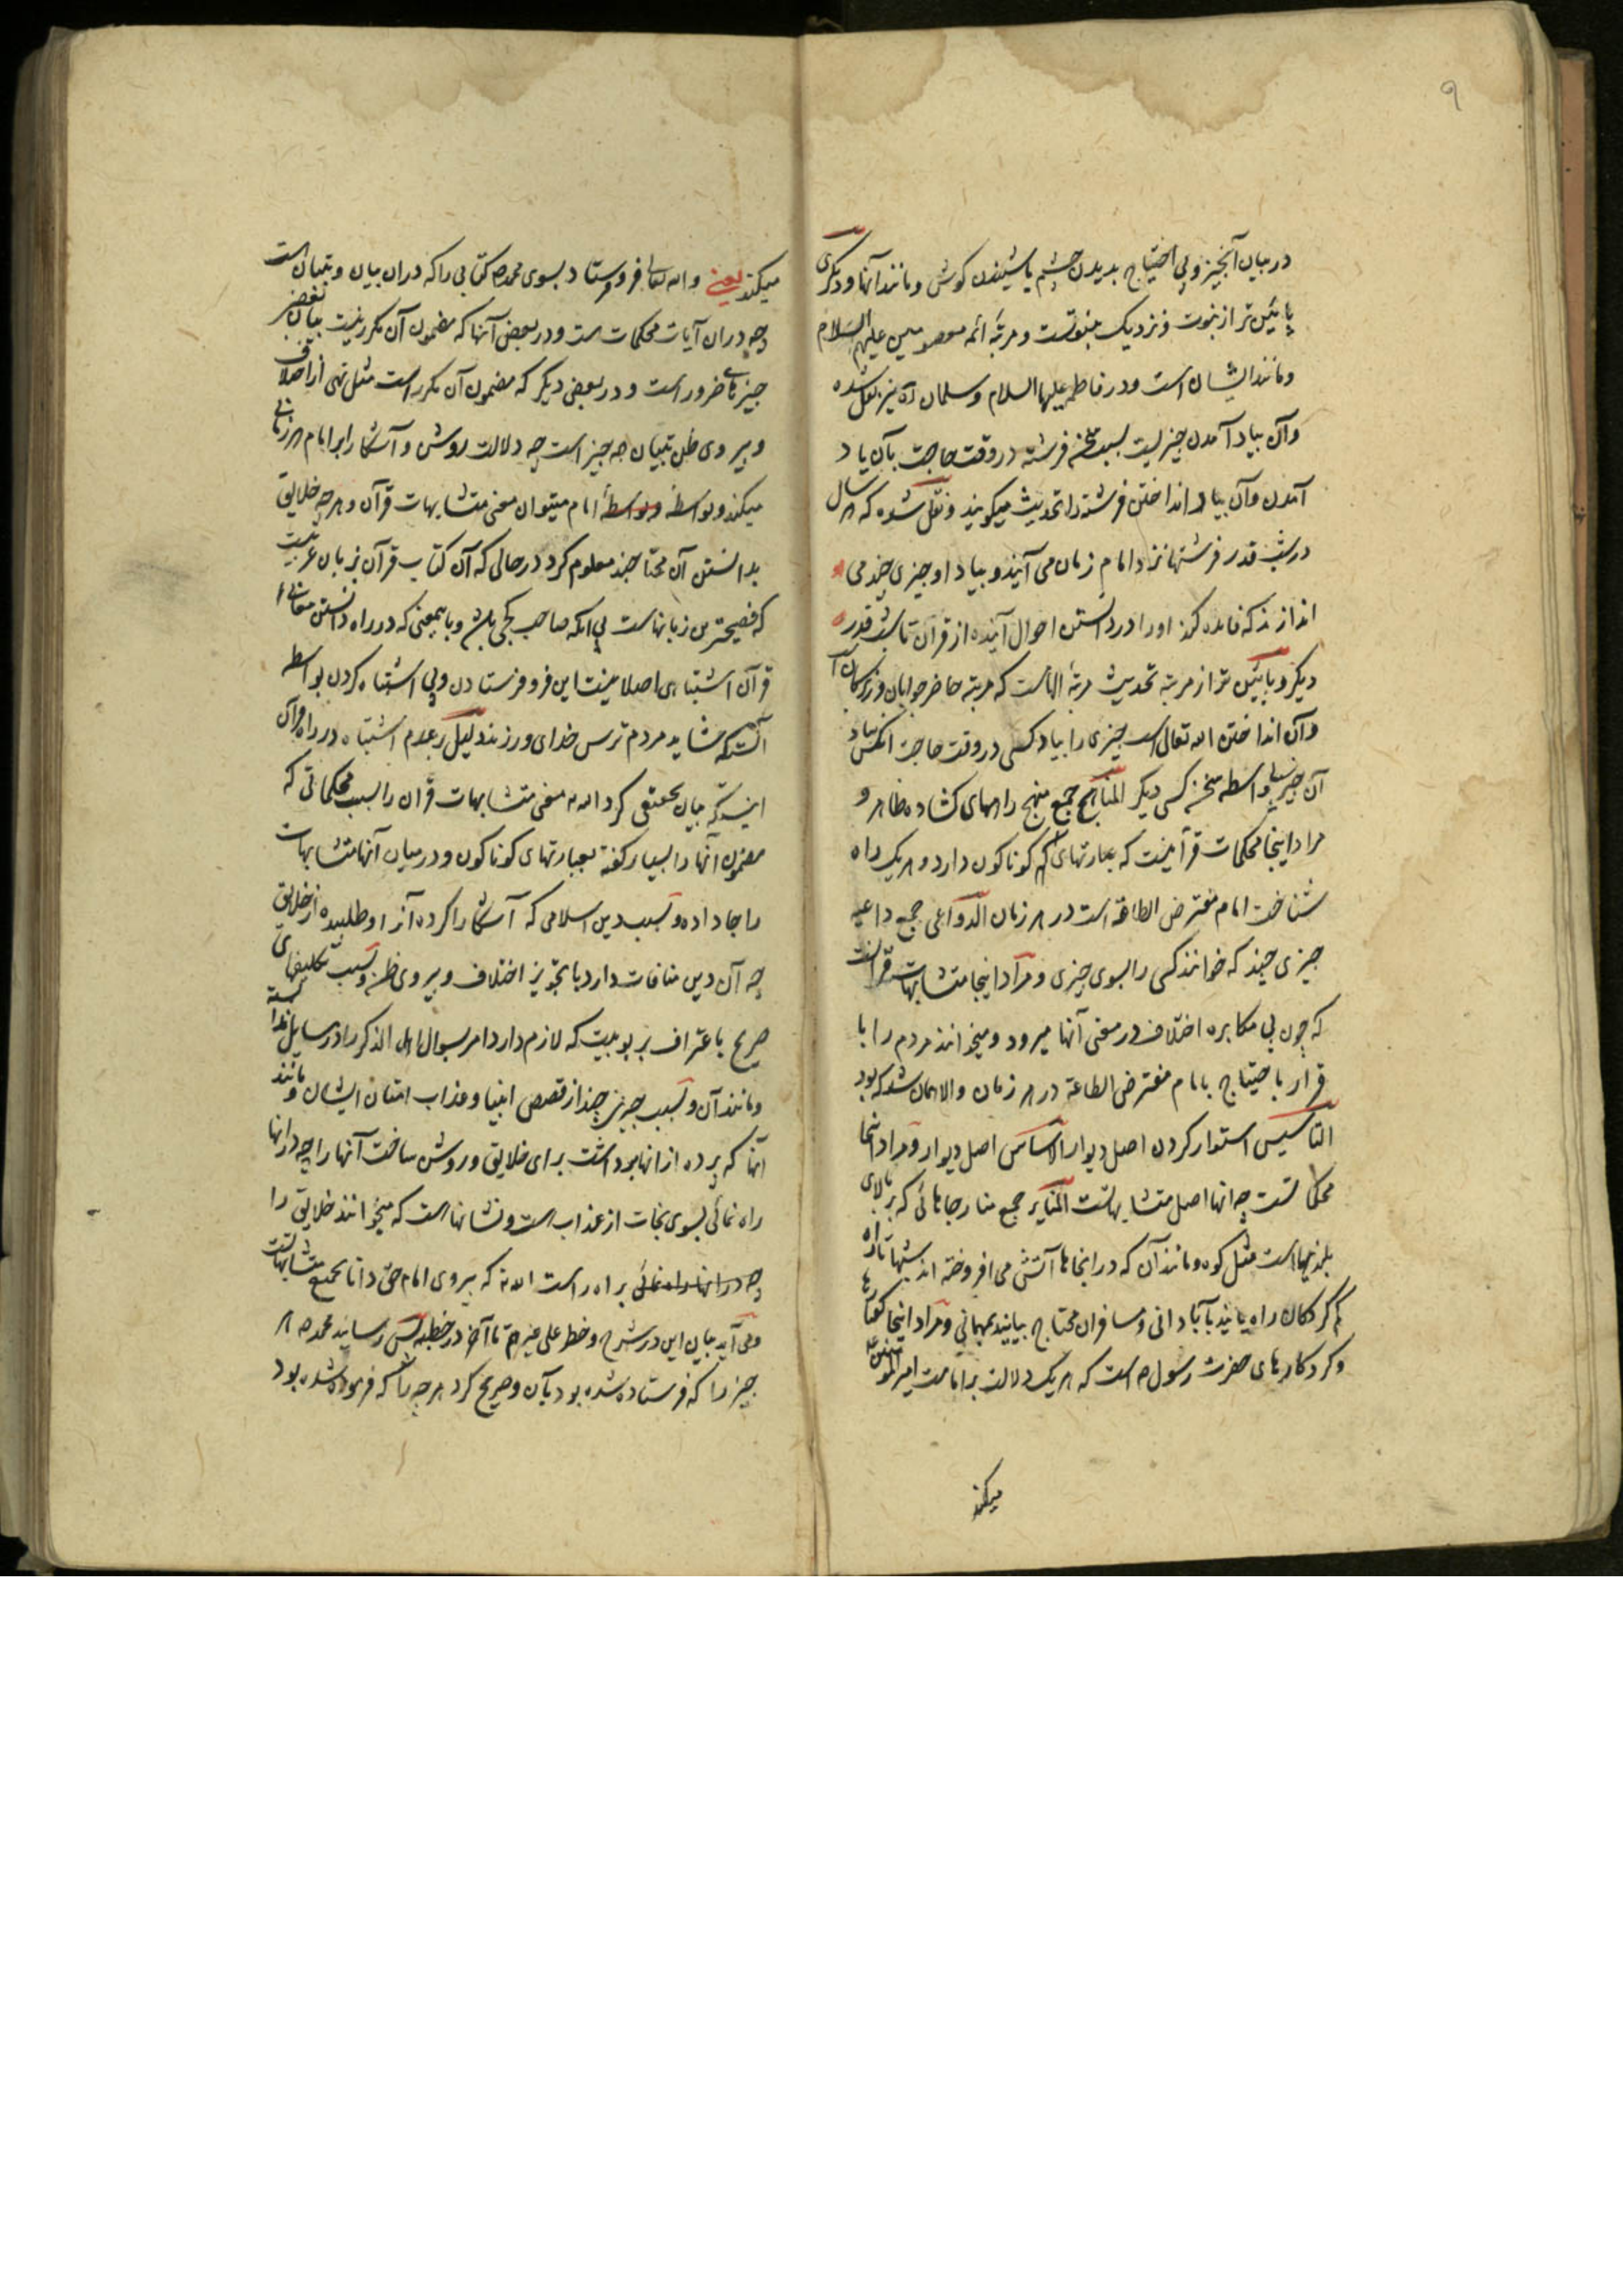 ۹
در میان آنچیز و بی احتیاج بدیدن چشم یا شنیدن کوش و مانند آنها و دیکری
پائین تر از نبوت و نزدیک بنبوتست و مرتبهٔ ائمه معصومین علیهم السلام
و مانند ایشان است و در فاطمه علیها السلام و سلمان ره نیز نقل شده
و آن بیاد آمدن چیزیست بسبب سخن فرشته در وقت حاجت بآن یاد
آمدن و آن بیاد انداختن فرشته را تحدیث میکویند و نقل شده که هر سال
در شب قدر فرشتها نزد امام زمان می آیند و بیاد او چیزی چند می
اندازند که فایده کند او را در دانستن احوال آینده از قرآن تا شب قدر
دیکر و پائین تر از مرتبه تحدیث مرتبهٔ الهامست که مرتبه حاضر جوابان و زیرکانست
و آن انداختن الله تعالی است چیزی را بیاد کسی در وقت حاجت آنکس بیاد
آن چیز بی واسطه سخن کسی دیکر المناهج جمع منهج راههای کشاده ظاهر و
مراد اینجا محکمات قرآنیست که عبارتهای کوناکون دارد و هر یک راه
شناخت امام مفترض الطاعة است در هر زمان الدواعی جمع داعیه
چیزی چند که خوانند کسی را بسوی چیزی و مراد اینجا متشابهات قرآنست
که چون بی مکابره اختلاف در معنی آنها میرود و میخوانند مردم را با
قرار باحتیاج بامام مفترض الطاعة در هر زمان و الا همان شد که بود
التاسیس استوار کردن اصل دیوار الاساس اصل دیوار و مراد اینجا
محکماتست چه آنها اصل متشابهاتست المنایر جمع منار جاهائی که بر بالای
بلندیهاست مثل کوه و مانند آن که در انجاها آتش می افروخته اند شبها تا راه
کم کردکان راه یابند بآبادانی و مسافران محتاج بیایند بمهمانی و مراد اینجا کفتارها
و کردکارهای حضرت رسول ص است که هر یک دلالت بر امامت امیر المؤمنین ع
میکند
میکند یعنی و الله تعالی فرو فرستاد بسوی محمد ص کتابی را که در ان بیان و تبیان است
چه در ان آیات محکمات است و در بعض آنها که مضمون آن مکرر نیست بیان بعض
چیزهای ضرور است و در بعضی دیکر که مضمون آن مکرر است مثل نهی از اختلاف
و پیروی ظن تبیان هر چیز است چه دلالت روشن و آشکارا بر امام هر زمانی
میکند و بواسطهٔ امام میتوان معنی متشابهات قرآن و هر چه خلایق
بدانستن آن محتاجند معلوم کرد در حالی که آن کتاب قرآن بزبان عربیست
که فصیحترین زبانهاست بی آنکه صاحب کجی باشد و باینمعنی که در راه دانستن معانی
قرآن اشتباهی اصلا نیست این فرو فرستادن و بی اشتباه کردن بواسطه
آنستکه شاید مردم ترس خدای ورزند دلیل بر عدم اشتباه در راه قرآن
اینستکه بیان تحقیقی کرد الله معنی متشابهات قرآن را بسبب محکماتی که
مضمون آنها را بسیار کفته بعبارتهای کوناکون و در میان آنها متشابهات
را جا داده و بسبب دین اسلامی که آشکارا کرده آنرا و طلبیده از خلایق
چه آن دین منافات دارد با تجویز اختلاف و پیروی ظن و بسبب تکلیفهای
صریح باعتراف بربوبیت که لازم دارد امر بسوال اهل الذکر را در مسایل
و مانند آن و بسبب چیزی چند از قصص انبیا و عذاب امتان ایشان و مانند
آنها که پرده از آنها برداشت برای خلایق و روشن ساخت آنها را چه در آنها
راه نمائی بسوی نجات از عذاب است و نشانهاست که میخوانند خلایق را
چه در آنها راه نمائی براه راست الله که پیروی امام حق دانا بجمیع متشابهاتست
و می آید بیان این در شرح و خط علی غیره تا آخر در خطبه پس رسانید محمد ص هر
چیز را که فرستاده شده بود بآن و صریح کرد هر چه را که فرموده شده بود